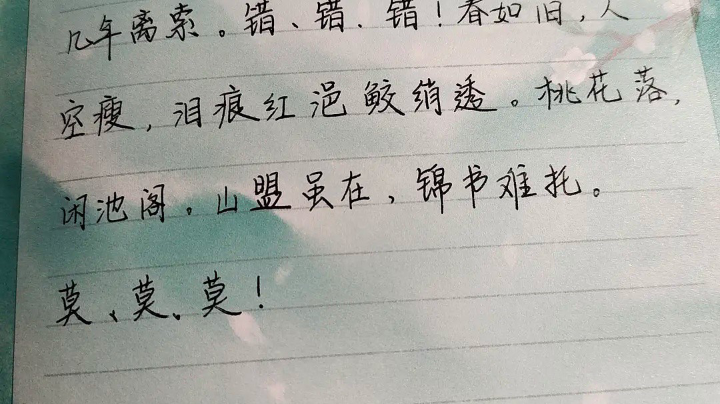 几年离索。错、错、错！春如旧，人
空瘦，泪痕红浥鲛绡透。桃花落，
闲池阁。山盟虽在，锦书难托。
莫、莫、莫！